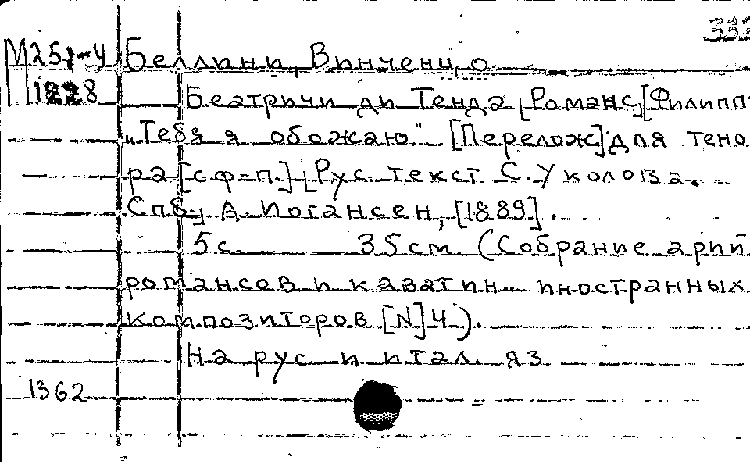 332
М251-4 Беллини, Винченцо
11228 Беатричи ди Тенда [Романс] Филиппо
„Тебя я обожаю" [Перелож] для тено
ра [с ф-п.] [Рус. текст С. Уколова.
Спб., А. Иогансен, [1889].
5с. 35см. (Собрание арий
романсов и каватин иностранных
композиторов [N] 4).
На рус и итал. яз
1362